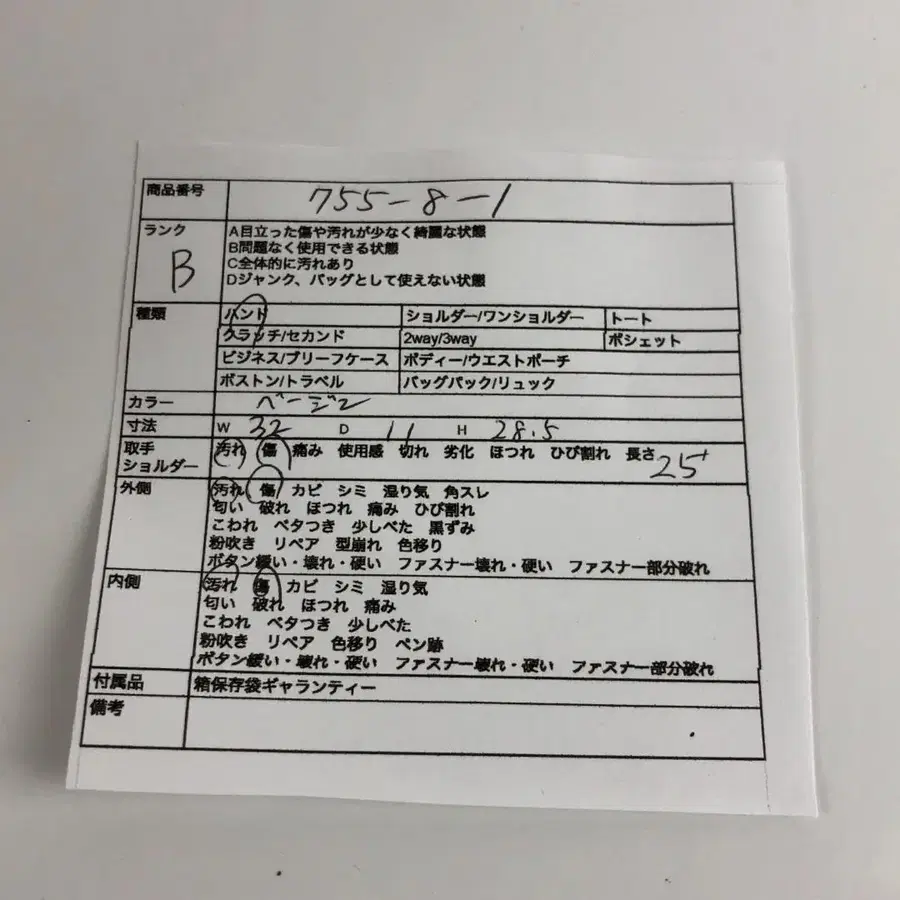 商品番号 755-8-1
ランク B
A目立った傷や汚れが少なく綺麗な状態
B問題なく使用できる状態
C全体的に汚れあり
Dジャンク、バッグとして使えない状態
種類 ハンド ショルダー/ワンショルダー トート
クラッチ/セカンド 2way/3way ポシェット
ビジネス/ブリーフケース ボディー/ウエストポーチ
ボストン/トラベル バッグパック/リュック
カラー ベージュ
寸法 W 32 D 11 H 28.5
取手 汚れ 傷 痛み 使用感 切れ 劣化 ほつれ ひび割れ 長さ 25
ショルダー
外側 汚れ 傷 カビ シミ 湿り気 角スレ
匂い 破れ ほつれ 痛み ひび割れ
こわれ ベタつき 少しべた 黒ずみ
粉吹き リペア 型崩れ 色移り
ボタン緩い・壊れ・硬い ファスナー壊れ・硬い ファスナー部分破れ
内側 汚れ 傷 カビ シミ 湿り気
匂い 破れ ほつれ 痛み
こわれ ベタつき 少しべた
粉吹き リペア 色移り ペン跡
ボタン緩い・壊れ・硬い ファスナー壊れ・硬い ファスナー部分破れ
付属品 箱保存袋ギャランティー
備考